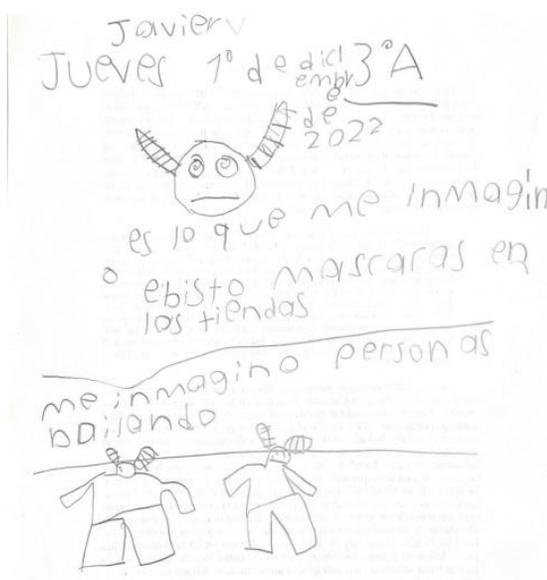 Javier
Jueves 1º de dici 3ºA
embr
e
de
2022
es lo que me inmagin
o ebisto mascaras en
las tiendas
me inmagino personas
bailando